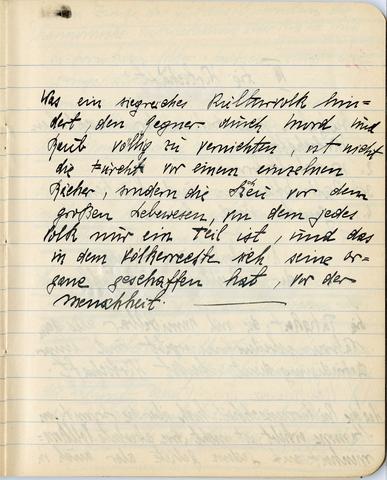 Was ein siegreiches Kulturvolk hin-
dert, den Gegner durch Mord und
Raub völlig zu vernichten, ist nicht
die Furcht vor einem einzelnen
Rächer, sondern die Scheu vor dem
großen Lebewesen, von dem jedes
Volk nur ein Teil ist, und das
in dem Völkerrechte sich seine Or-
gane geschaffen hat, vor der
Menschheit.